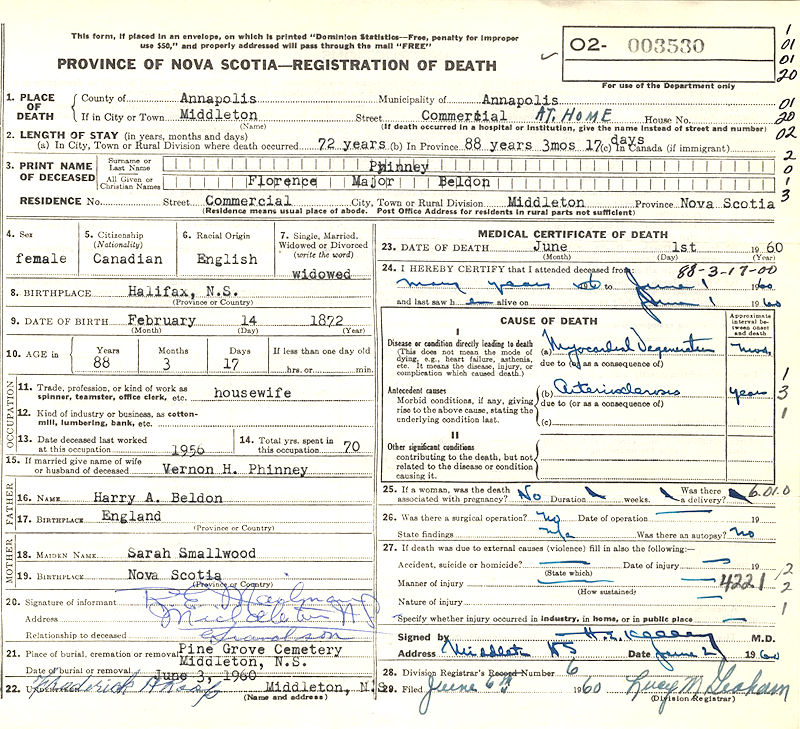 This form, if placed in an envelope, on which is printed "Dominion Statistics—Free, penalty for improper
use $50," and properly addressed will pass through the mail "FREE"
PROVINCE OF NOVA SCOTIA—REGISTRATION OF DEATH
02- 003530
For use of the Department only
1
01
01
20
01
20
02
2
0
1
3
1. PLACE OF DEATH
County of Annapolis Municipality of Annapolis
If in City or Town Middleton Street Commercial AT HOME House No.
(Name) (If death occurred in a hospital or Institution, give the name instead of street and number)
2. LENGTH OF STAY (in years, months and days)
(a) In City, Town or Rural Division where death occurred 72 years (b) In Province 88 years 3mos 17 days (c) In Canada (if immigrant)
3. PRINT NAME OF DECEASED
Surname or Last Name Phinney
All Given or Christian Names Florence Major Beldon
RESIDENCE No. Street Commercial City, Town or Rural Division Middleton Province Nova Scotia
(Residence means usual place of abode. Post Office Address for residents in rural parts not sufficient)
4. Sex
female
5. Citizenship
(Nationality)
Canadian
6. Racial Origin
English
7. Single, Married, Widowed or Divorced
(write the word)
widowed
8. BIRTHPLACE Halifax, N.S.
(Province or Country)
9. DATE OF BIRTH February 14 1872
(Month) (Day) (Year)
10. AGE in
Years 88
Months 3
Days 17
If less than one day old
hrs. or min.
OCCUPATION
11. Trade, profession, or kind of work as
spinner, teamster, office clerk, etc. housewife
12. Kind of industry or business, as cotton-
mill, lumbering, bank, etc.
13. Date deceased last worked
at this occupation 1956
14. Total yrs. spent in
this occupation 70
15. If married give name of wife
or husband of deceased Vernon H. Phinney
FATHER
16. NAME Harry A. Beldon
17. BIRTHPLACE England
(Province or Country)
MOTHER
18. MAIDEN NAME Sarah Smallwood
19. BIRTHPLACE Nova Scotia
(Province or Country)
20. Signature of informant
Address Middleton N S
Relationship to deceased Grandson
21. Place of burial, cremation or removal Pine Grove Cemetery
Middleton, N.S.
Date of burial or removal June 3, 1960
22. Frederick Middleton, N.S.
(Name and address)
MEDICAL CERTIFICATE OF DEATH
23. DATE OF DEATH June 1st 1960
(Month) (Day) (Year)
88-3-17-00
24. I HEREBY CERTIFY that I attended deceased from
many years to June 1 1960
and last saw her alive on June 1 1960
CAUSE OF DEATH
Approximate interval between onset and death
I
Disease or condition directly leading to death
(This does not mean the mode of
dying, e.g., heart failure, asthenia,
etc. It means the disease, injury, or
complication which caused death.)
(a) Myocardial Degeneration
due to (or as a consequence of)
Antecedent causes
Morbid conditions, if any, giving
rise to the above cause, stating the
underlying condition last.
(b) Arteriosclerosis years
due to (or as a consequence of)
(c)
1
3
1
II
Other significant conditions
contributing to the death, but not
related to the disease or condition
causing it.
25. If a woman, was the death
associated with pregnancy? No Duration weeks. Was there a delivery?
6.01.0
26. Was there a surgical operation? no Date of operation 19
State findings n/a Was there an autopsy? No
27. If death was due to external causes (violence) fill in also the following:—
Accident, suicide or homicide? Date of injury 19
(State which)
Manner of injury 4221
(How sustained)
Nature of injury
12
2
1
Specify whether injury occurred in industry, in home, or in public place
Signed by M.D.
Address Middleton NS Date June 2 1960
28. Division Registrar's Record Number 6
29. Filed June 6th 1960 Lucy M. Graham
(Division Registrar)